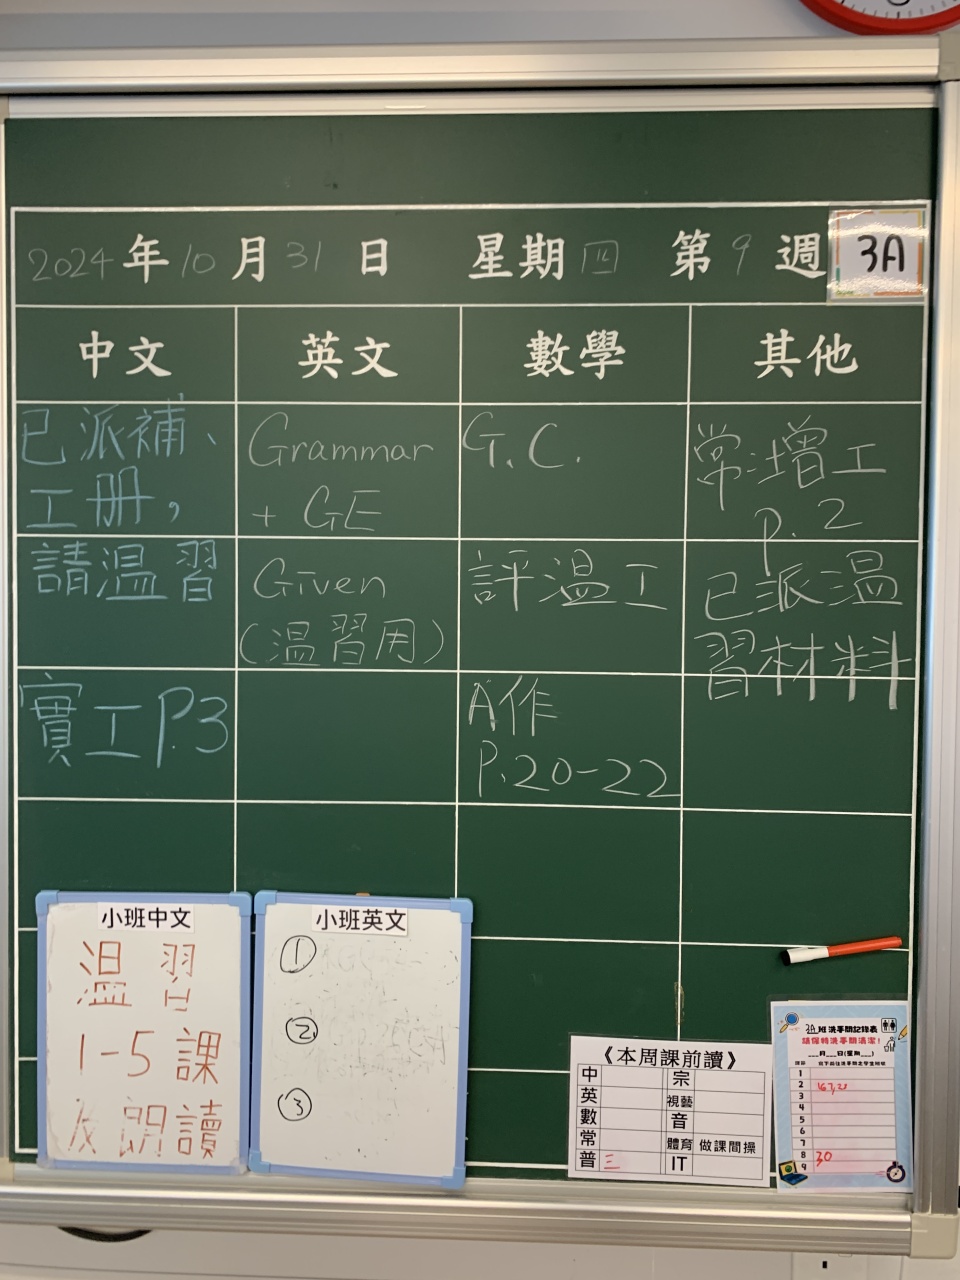 2024年10月31日 星期四 第9週 3A
中文 英文 數學 其他
已派補、
工册，
請温習
實工P.3
Grammar
+ GE
Given
(温習用)
G.C.
評温工
A作
P.20-22
常:增工
P.2
已派温
習材料
小班中文
温習
1-5課
及朗讀
小班英文
①
②
③
《本周課前讀》
中 宗
英 視藝
數 音
常 體育 做課間操
普 三 IT
3A班洗手間記錄表
請保持洗手間清潔！
___月___日(星期___)
1
2
3
4
5
6
7
8 30
9